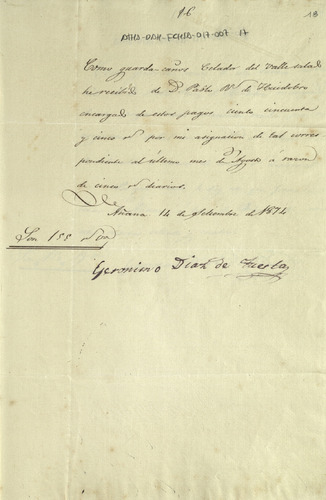 16
18
ATHA-DAH-FCHSA-017-007 17
Como guarda-caños Celador del Valle salado
he recibido de Dn Pablo Ma de Huidobro
encargado de estos pagos ciento cincuenta
y cinco rs por mi asignacion de tal corres
pondiente al último mes de Agosto á razon
de cinco rs diarios.
Añana 14 de Setiembre de 1874
Son 155 rs vn
Geronimo Diaz de Tuesta